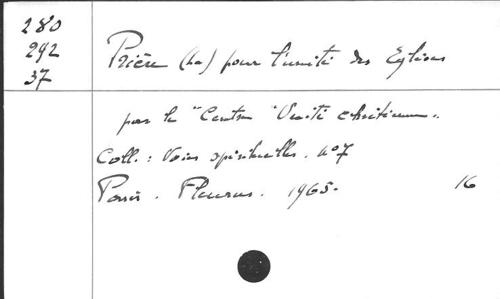 280
292
37
Prière (La) pour l'unité des Eglises
par le "Centre "Unité chrétienne".
Coll. : Voies spirituelles. n°7
Paris. Fleurus. 1965.
16